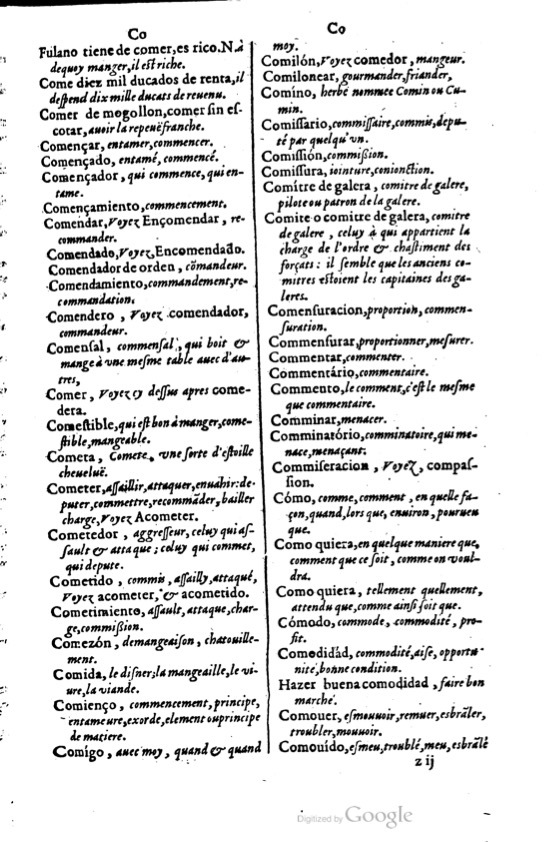 Co
Fulano tiene de comer, es rico. N. à
dequoy manger, il est riche.
Come diez mil ducados de renta, il
despend dix mille ducats de reuenu.
Comer de mogollon, comer sin es-
cotar, auoir la repeuë franche.
Començar, entamer, commencer.
Començado, entamé, commencé.
Començador, qui commence, qui en-
tame.
Començamiento, commencement.
Comendar, Voyez Ençomendar, re-
commander.
Comendado, Voyez, Encomendado.
Comendador de orden, cõmandeur.
Comendamiento, commandement, re-
commandation.
Comendero, Voyez comendador,
commandeur.
Comensal, commensal, qui boit &
mange à vne mesme table auec d'au-
tres,
Comer, Voyez cy dessus apres come-
dera.
Comestible, qui est bon à manger, come-
stible, mangeable.
Cometa, Comete, vne sorte d'estoille
cheueluë.
Cometer, assaillir, attaquer, enuahir: de-
puter, commettre, recommãder, bailler
charge, Voyez Acometer.
Cometedor, aggresseur, celuy qui as-
sault & attaque; celuy qui commet,
qui depute.
Cometido, commis, assailly, attaqué,
Voyez acometer, & acometido.
Cometimiento, assault, attaque, char-
ge, commißion.
Comezón, demangeaison, chatouille-
ment.
Comida, le disner; la mangeaille, le vi-
ure, la viande.
Comienço, commencement, principe,
entameure, exorde, element ou principe
de matiere.
Comigo, auec moy, quand & quand
Co
moy.
Comilón, Voyez comedor, mangeur.
Comilonear, gourmander, friander,
Comíno, herbe nommee Comin ou Cu-
min.
Comissario, commissaire, commis, depu-
té par quelqu'vn.
Comissión, commißion.
Comissura, iointure, conionction.
Comítre de galera, comitre de galere,
pilote ou patron de la galere.
Comite o comitre de galera, comitre
de galere, celuy à qui appartient la
charge de l'ordre & chastiment des
forçats: il semble que les anciens co-
mitres estoient les capitaines des ga-
leres.
Comensuracion, proportion, commen-
suration.
Commensurar, proportionner, mesurer.
Commentar, commenter.
Commentário, commentaire.
Commento, le comment, c'est le mesme
que commentaire.
Comminar, menacer.
Comminatório, comminatoire, qui me-
nace, menaçant.
Commiseracion, Voyez, compas-
sion.
Cómo, comme, comment, en quelle fa-
çon, quand, lors que, enuiron, pourueu
que.
Como quiera, en quelque maniere que,
comment que ce soit, comme on voul-
dra.
Como quiera, tellement quellement,
attendu que, comme ainsi soit que.
Cómodo, commode, commodité, pro-
fit.
Comodidad, commodité, aise, opportu-
nité, bonne condition.
Hazer buena comodidad, faire bon
marché.
Comouer, esmouuoir, remuer, esbrãler,
troubler, mouuoir.
Comouído, esmeu, troublé, meu, esbrãlé
z ij
Digitized by Google